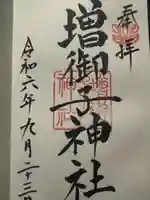 奉拝
増御子神社
令和六年九月二十三日